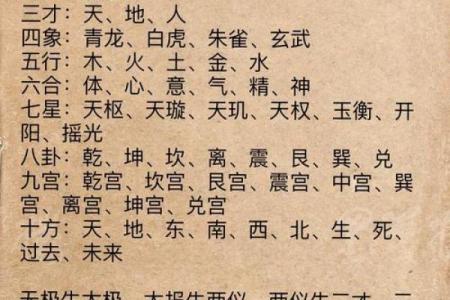 三才：天、地、人
四象：青龙、白虎、朱雀、玄武
五行：木、火、土、金、水
六合：体、心、意、气、精、神
七星：天枢、天璇、天玑、天权、玉衡、开
阳、摇光
八卦：乾、坤、坎、离、震、艮、巽、兑
九宫：乾宫、坎宫、艮宫、震宫、中宫、巽
宫、离宫、坤宫、兑宫
十方：天、地、东、南、西、北、生、死、
过去、未来